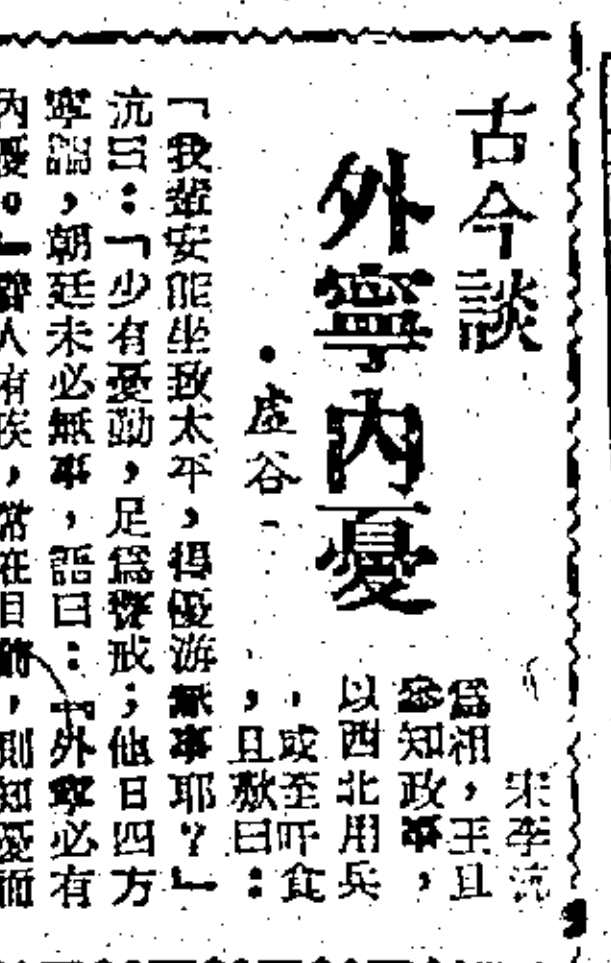 古今談
外寧內憂
・虛谷・
宋李沆
爲相，王旦
參知政事，
以西北用兵
，或至旰食
，旦歎曰：
「我輩安能坐致太平，得優游無事耶？」
沆曰：「少有憂勤，足爲警戒；他日四方
寧謐，朝廷未必無事，語曰：『外寧必有
內憂。』譬人有疾，常在目前，則知憂而